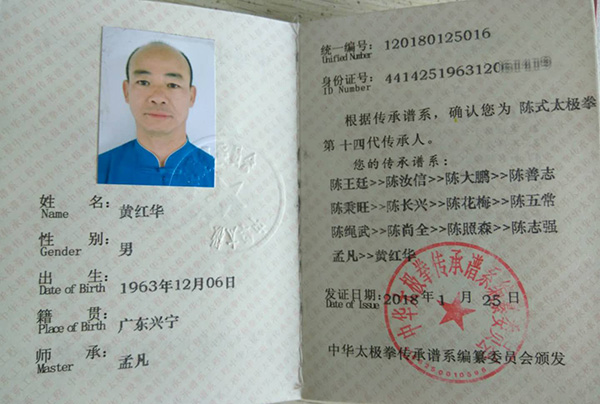 姓 名: 黄红华
Name
性 别: 男
Gender
出 生: 1963年12月06日
Date of Birth
籍 贯: 广东兴宁
Place of Birth
师 承: 孟凡
Master
统一编号: 120180125016
Unified Number
身份证号: 4414251963120
ID Number
根据传承谱系,确认您为 陈式太极拳
第十四代传承人。
您的传承谱系:
陈王廷>>陈汝信>>陈大鹏>>陈善志
陈秉旺>>陈长兴>>陈花梅>>陈五常
陈绳武>>陈尚全>>陈照森>>陈志强
孟凡>>黄红华
发证日期: 2018年1月25日
Date of Issue
中华太极拳传承谱系编纂委员会颁发